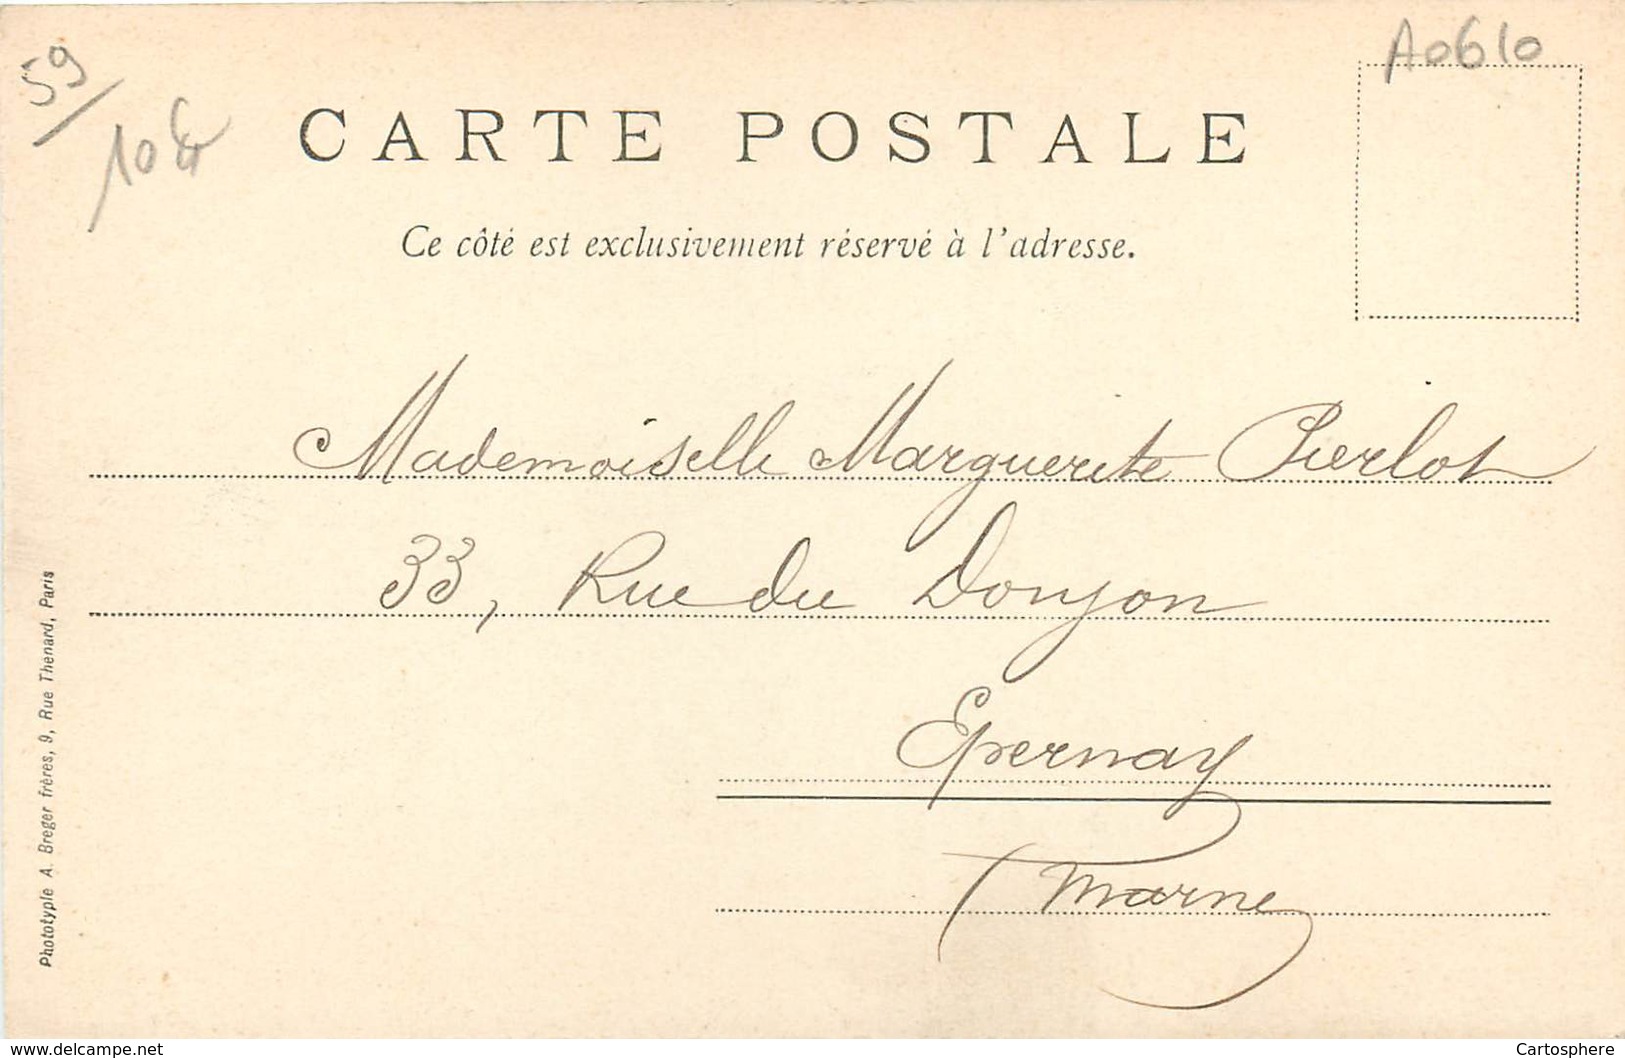 59/
10 €
A0610
CARTE POSTALE
Ce côté est exclusivement réservé à l'adresse.
Mademoiselle Marguerite Pierlot
33, Rue du Donjon
Epernay
(Marne)
Phototypie A. Breger frères, 9, Rue Thenard, Paris
www.delcampe.net
Cartosphere